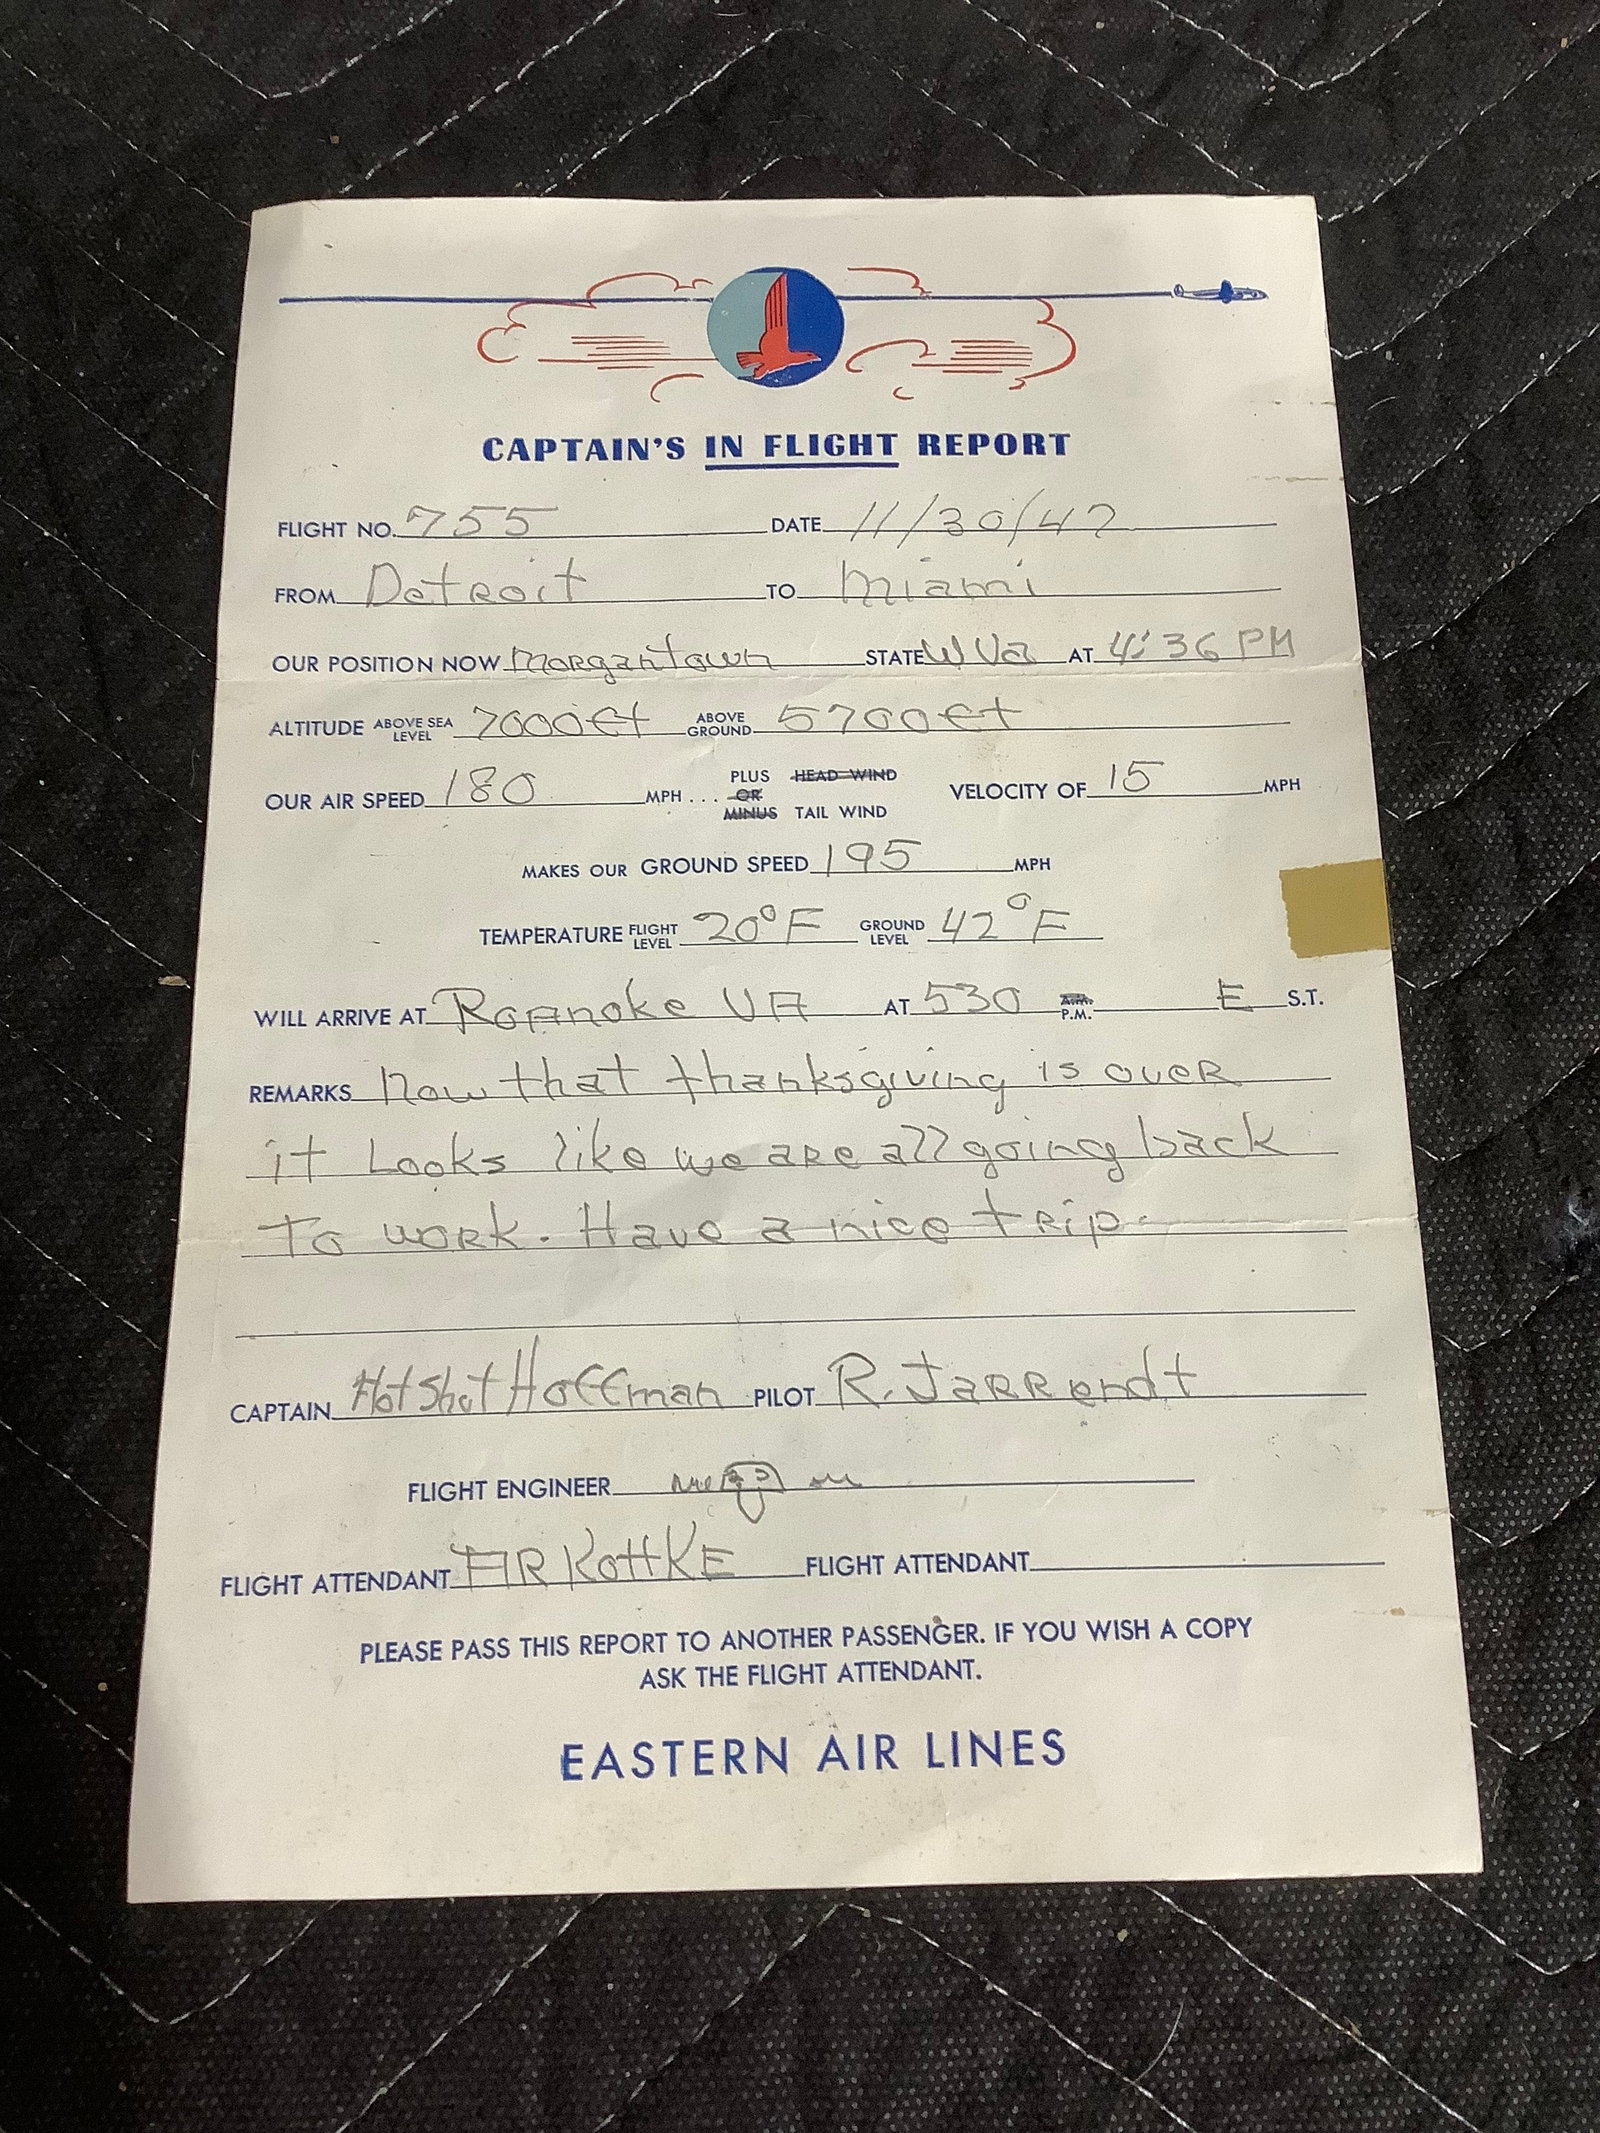 CAPTAIN'S IN FLIGHT REPORT
FLIGHT NO. 755 DATE 11/30/47
FROM Detroit TO Miami
OUR POSITION NOW Morgantown STATE W Va AT 4:36 PM
ALTITUDE ABOVE SEA LEVEL 7000 ft ABOVE GROUND 5700 ft
OUR AIR SPEED 180 MPH... PLUS OR MINUS HEAD WIND TAIL WIND VELOCITY OF 15 MPH
MAKES OUR GROUND SPEED 195 MPH
TEMPERATURE FLIGHT LEVEL 20°F GROUND LEVEL 42°F
WILL ARRIVE AT Roanoke VA AT 530 A.M. P.M. E S.T.
REMARKS Now that thanksgiving is over
it Looks like we are all going back
To work. Have a nice trip.
CAPTAIN Hot Shot Hoffman PILOT R. Jarrendt
FLIGHT ENGINEER
FLIGHT ATTENDANT AR KottKE FLIGHT ATTENDANT
PLEASE PASS THIS REPORT TO ANOTHER PASSENGER. IF YOU WISH A COPY
ASK THE FLIGHT ATTENDANT.
EASTERN AIR LINES